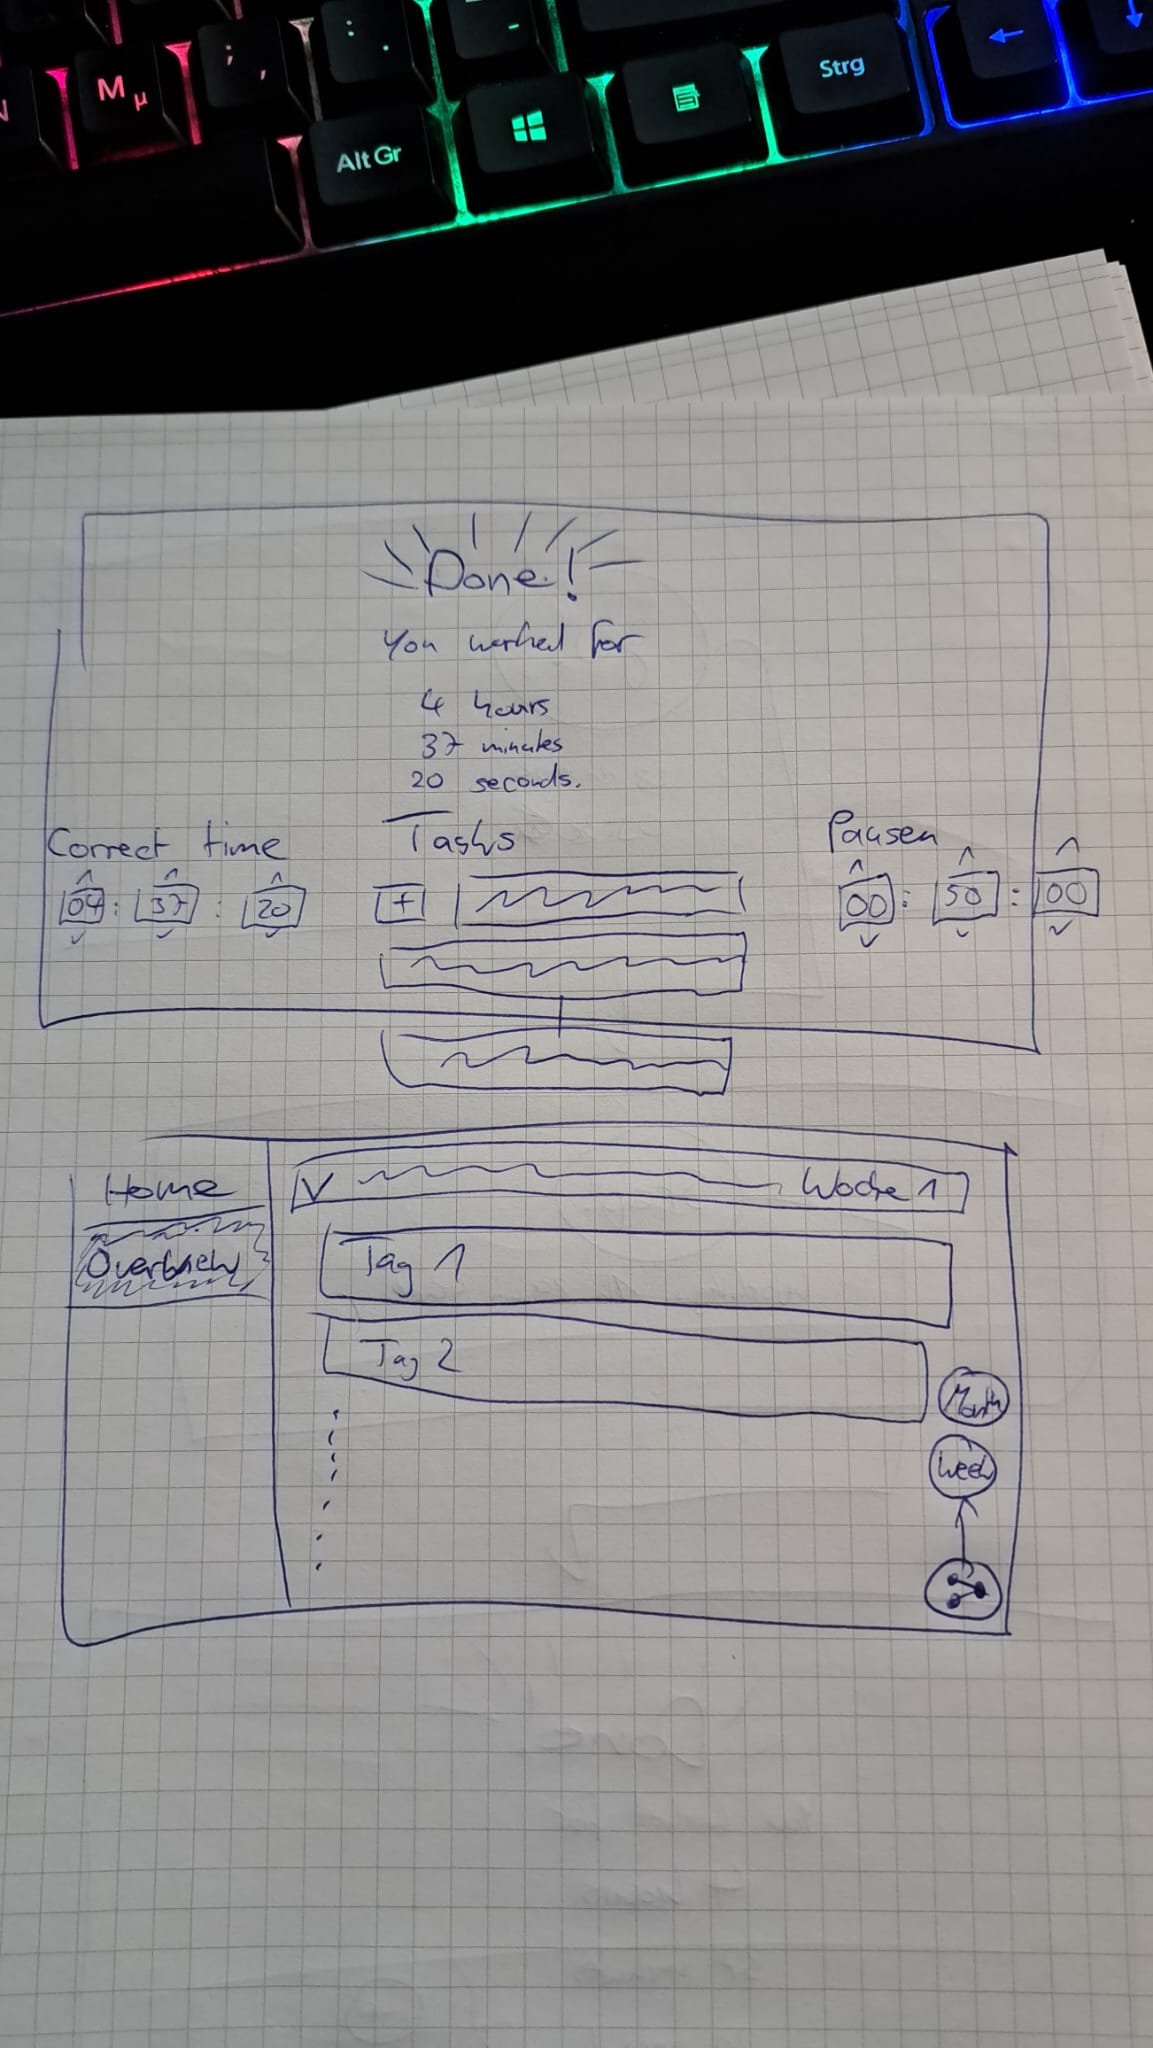 M µ
; ,
: .
_ -
Alt Gr
Strg
Done!
You worked for
4 hours
37 minutes
20 seconds.
Correct time
Tasks
Pausen
04 : 37 : 20
+
00 : 50 : 00
Home
Woche 1
Tag 1
Tag 2
Month
Week